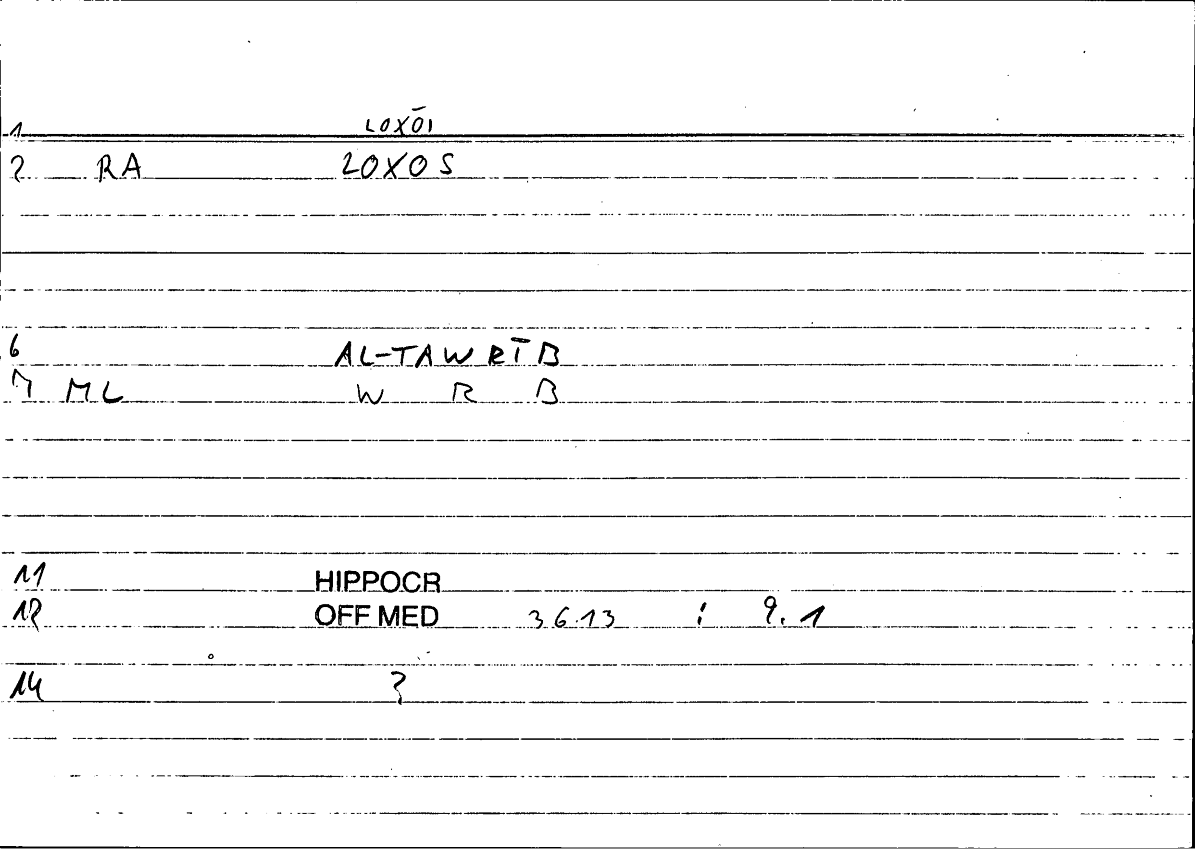 1 LOXŌI
2 RA LOXOS
6 AL-TAWRĪB
7 ML W R B
11 HIPPOCR
12 OFF MED 36.13 : 9.1
14 ?